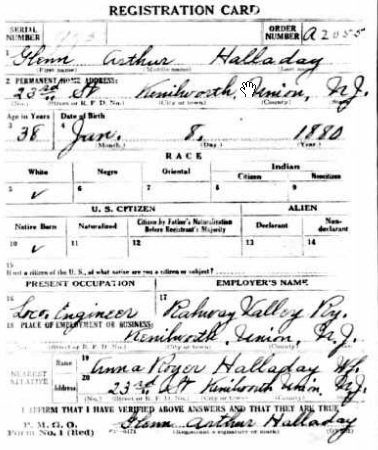 REGISTRATION CARD
SERIAL NUMBER ORDER NUMBER A2055
1 Glenn Arthur Halladay
(First name) (Middle name) (Last name)
2 PERMANENT HOME ADDRESS:
23rd St Kenilworth, Union, N.J.
(No.) (Street or R. F. D. No.) (City or town) (County) (State)
Age in Years Date of Birth
3 38 4 Jan. 8, 1880
(Month.) (Day.) (Year.)
RACE
White Negro Oriental Indian
Citizen Noncitizen
5 ✓ 6 7 8 9
U. S. CITIZEN ALIEN
Native Born Naturalized Citizen by Father's Naturalization Before Registrant's Majority Declarant Non-declarant
10 ✓ 11 12 13 14
15
If not a citizen of the U. S., of what nation are you a citizen or subject?
PRESENT OCCUPATION EMPLOYER'S NAME
16 Loco. Engineer 17 Rahway Valley Ry.
18 PLACE OF EMPLOYMENT OR BUSINESS:
Kenilworth, Union, N.J.
(No.) (Street or R. F. D. No.) (City or town) (County) (State)
NEAREST RELATIVE Name 19 Anna Royer Halladay Wf.
Address 20 23rd St Kenilworth Union, N.J.
(No.) (Street or R. F. D. No.) (City or town) (County) (State)
I AFFIRM THAT I HAVE VERIFIED ABOVE ANSWERS AND THAT THEY ARE TRUE
P. M. G. O.
Form No. 1 (Red) Glenn Arthur Halladay
(Registrant's signature or mark) (OVER)